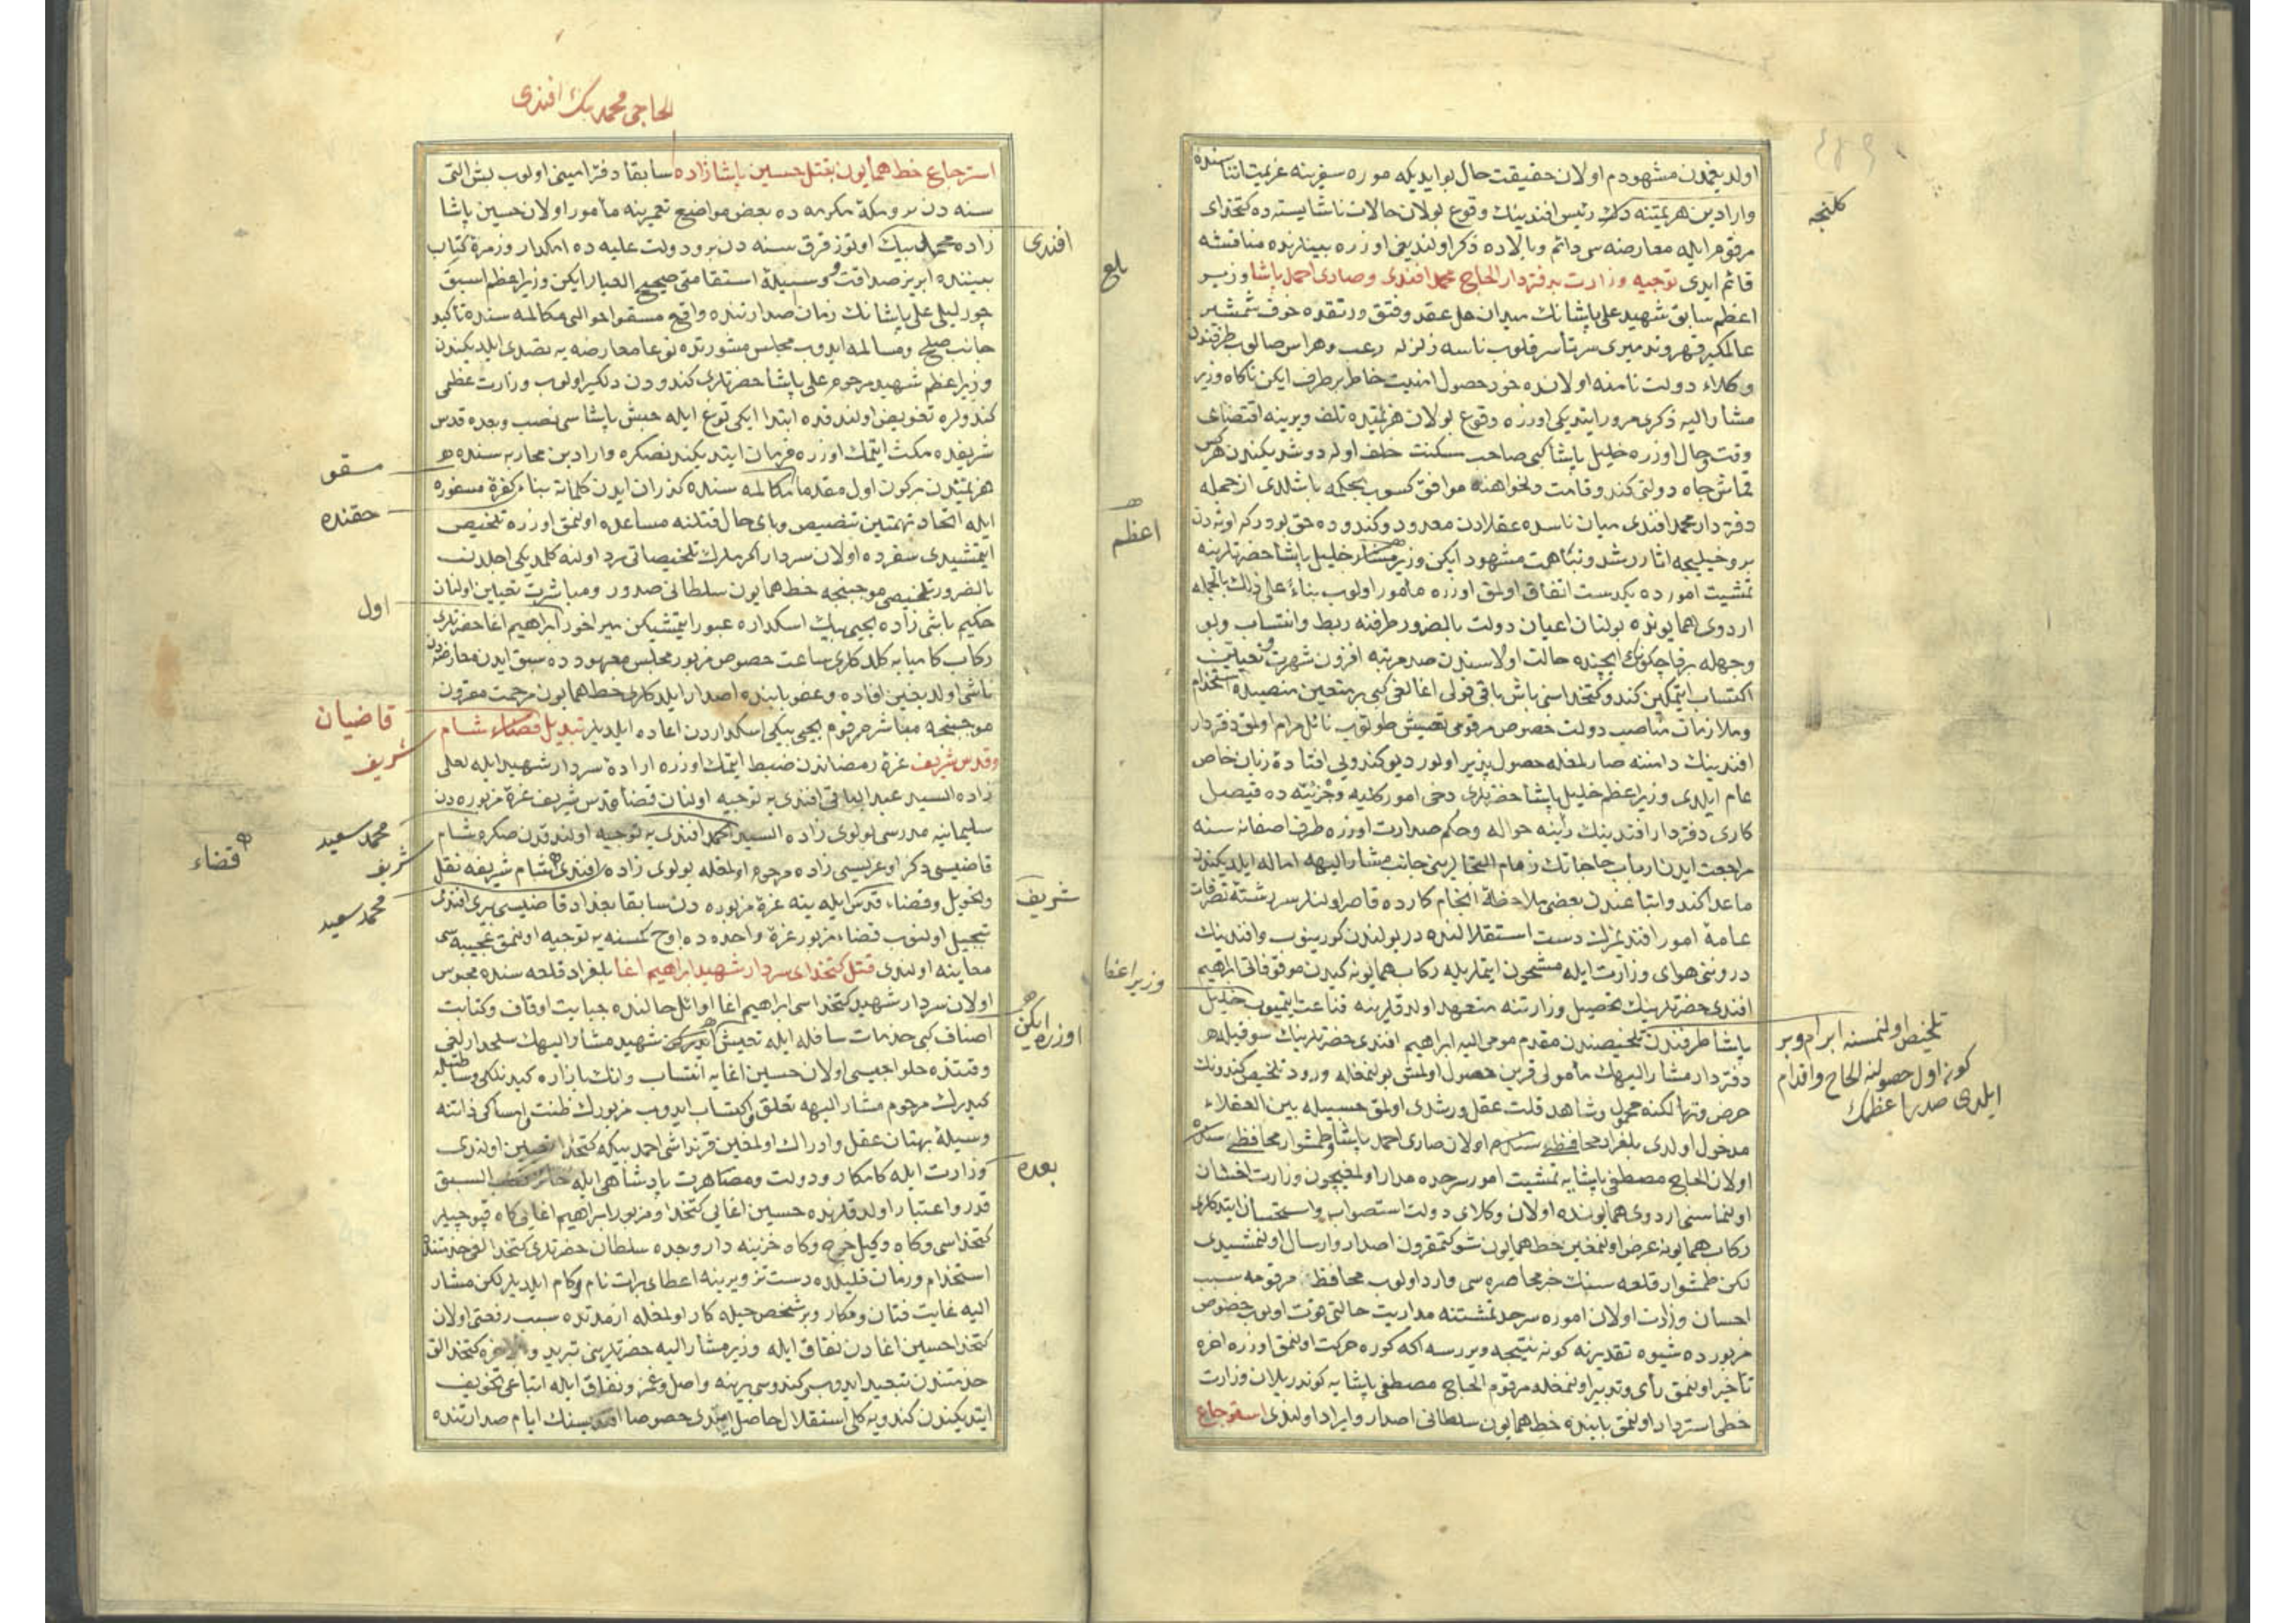 اولدیغمدن مشهودم اولان حقیقت حال بو ایدیکه موره سفرینه عزیمت اثناسنده
وارادین هزیمتنه دك رئیس افندینك وقوع بولان حالات ناشایسته ده کتخدای
مرقوم ایله معارضه سی دائم و بالاده ذکر اولندیغی اوزره بینلرنده مناقشه
قائم ایدی توجیه وزارت بدفتردار الحاج محمد افندی و صاری احمد پاشا وزیر
اعظم سابق شهید علی پاشانك میدان حل عقد و فتق و رتقده خوف شمشیر
عالمکیر قهر وتدمیری سرتاسر قلوب ناسه زلزله رعب وهراس صالوب طرفندن
وکلاء دولت نامنه اولانده خود حصول امنیت خاطر برطرف ایکن ناکاه وزیر
مشار الیه ذکری مرور ایتدیکی اوزره وقوع بولان هزیمتده تلف ویرینه اقتضای
وقت وحال اوزره خلیل پاشا کبی صاحب مسکنت خلف اوله دوشدیکندن هرکس
قماش جاه دولتی کندو قامت دلخواهنه موافق کسوب بچمکه باشلدی از جمله
دفتردار محمد افندی میان ناسده عقلادن معدود و کندوده حق بودرکه اوته دن
برو خیلیجه اثار رشد ونباهت مشهود ایکن وزیر مشار خلیل پاشا حضرتلرینه
تمشیت امورده یکدست اتفاق اولمق اوزره مأمور اولوب بناءً علی ذلك بالجمله
اردوی همایونده بولنان اعیان دولت بالضرور طرفنه ربط وانتساب وبو
وجهله برقاچ کونك ایچنده حالت اولاسندن صد مرتبه افزون شهرت وتعیناتین
اکتساب ایتمکین کندو کتخداسنی باش باقی قولی اغالغی کبی بر متعین منصبله استخدام
وملازمان مناصب دولت خصوص مرقومی تفتیش طولنوب نائل مرام اولمق دفتردار
افندینك دامننه صارلمغله حصولپذیر اولور دیو کندویی افتادهٔ زبان خاص
عام ایلدی وزیر اعظم خلیل پاشا حضرتلری دخی امور کلیه وجزئیه ده فیصل
کاری دفتردار افندینك رأینه حواله وحکم صدارت اوزره طرف اصفانه سنه
مراجعت ایدن ارباب حاجاتك زمام التجالرینی جانب مشار الیهه اماله ایلدیکندن
ماعدا کندو اتباعندن بعضی ملاحظهٔ انجام کارده قاصر اولنلر سررشتهٔ تصرفات
عامهٔ امور افندیمزك دست استقلالنده در بولندن کورینوب وافندینك
دروننی هوای وزارت ایله مشحون ایتملریله رکاب همایونه کیدن موقوفاتی ابراهیم
افندی حضرتلرینك تحصیل وزارتنه متعهد اولدقلرینه قناعت ایتمیوب خلیل
پاشا طرفندن تلخیصندن مقدم مومی الیه ابراهیم افندی حضرتلرینك سوقیله
دفتردار مشار الیهك مأمولی قرین حصول اولمش بولنمغله ورود تلخیص کندونك
حرض وتهالکنه محمول وشاهد قلت عقل ورشدی اولمق حسبیله بین العقلاء
مدخول اولدی بلغراد محافظهء سنده اولان صاری احمد پاشا وطمشوار محافظهء سنده
اولان الحاج مصطفی پاشایه تمشیت امور سرحده مدار اولمغیچون وزارت احسان
اولنماسنی اردوی همایونده اولان وکلای دولت استصواب واستحسان ایتدکلری
رکاب همایونه عرض اولنمغین خط همایون شوکتمقرون اصدار وارسال اولنمشیدی
لکن طمشوار قلعه سنك خبر محاصره سی وارد اولوب محافظ مرقومه سبب
احسان وزارت اولان اموره سرحد تمشتنه مداریت حالتی فوت اولوب خصوص
مزبورده شیوه تقدیرنه کونه نتیجه ویررسه اکه کوره حرکت اولنمق اوزره اخره
تأخیر اولنمق رأی وتدبیر اولنمغله مرقوم الحاج مصطفی پاشایه کوندریلان وزارت
خطی استرداد اولنمق بابنده خط همایون سلطانی اصدار وایراد اولندی استرجاع
کلنجه
اعظم
وزیر اعظم
تلخیص اولنمسنه ابرام وبر
کون اول حصولنه الحاح واقدام
ایلدی صدر اعظمك
الحاجی محمد بك افندی
استرجاع خط همایون بقتل حسین پاشازاده سابقا دفتر امینی اولوب بش التی
سنه دن برو مکهٔ مکرمه ده بعض مواضیع تعمیرینه مأمور اولان حسین پاشا
زاده محمد بیك اوتوز قرق سنه دن برو دولت علیه ده امکدار وزمرهٔ کتاب
بیننده ابریز صداقت وسبیکهٔ استقامتی صحیح العیار ایکن وزیر اعظم اسبق
چورلیلی علی پاشانك زمان صدارتنده واقع مسقو احوالی مکالمه سنده تأکید
جانب صلح ومسالمه ایدوب مجلس مشورتده نوعا معارضه یه تصدی ایلدیکندن
وزیر اعظم شهید مرحوم علی پاشا حضرتلری کندودن دلکیر اولوب وزارت عظمی
کندولره تفویض اولندقده ابتدا ایکی توغ ایله حبش پاشاسی نصب وبعده قدس
شریفده مکث ایتمك اوزره فرمان ایتدیکندنصکره وارادین محاربه سنده
هزیمتدن برکون اول مقدما مکالمه سنده کذران ایدن کلماته بناء کفرهٔ مسفوره
ایله اتحاد تهمتین تنصیص وبای حال قتلنه مساعده اولنمق اوزره تلخیص
ایتمشیدی سفرده اولان سردار اکرملرك تلخیصاتی رد اولنه کلمدیکی اجلدن
بالضرور تلخیصی موجبنجه خط همایون سلطانی صدور ومباشرت تعیین اولنان
حکیم باشی زاده یحیی بیك اسکداره عبور ایتمشیکن میراخور ابراهیم اغا حضرتلری
رکاب کامیابه کلدکلری ساعت خصوص مزبور مجلس معهودده سبق ایدن معارضه دن
ناشی اولدیغین افاده وعفو بابنده اصدار ایلدکلری خط همایون مرحمت مقرون
موجبنجه مباشر مرقوم یحیی بیکی اسکداردن اعاده ایلدیلر تبدیل قضاء شام
وقدس شریف غرهٔ رمضاندن ضبط ایتمك اوزره اراده سردار شهید ایله لعلی
زاده السید عبد الباقی افندی یه توجیه اولنان قضاء قدس شریف غرهٔ مزبوره دن
سلیمانیه مدرسی بولوی زاده السید احمد افندی یه توجیه اولندقدن صکره شام
قاضیسی دکر اوغریسی زاده مرحوم اولمغله بولوی زاده افندی شام شریفه نقل
وتحویل وقضاء قدس ایله ینه غرهٔ مزبوره دن سابقا بغداد قاضیسی بری افندی
تبجیل اولنوب قضاء مزبور غرهٔ واحده ده اوچ کمسنه یه توجیه اولنمق عجیبه سی
معاینه اولندی قتل کتخدای سردار شهید ابراهیم اغا بلغراد قلعه سنده محبوس
اولان سردار شهید کتخداسی ابراهیم اغا اوائل حالنده جبایت اوقاف وکتابت
اصناف کبی خدمات سافله ایله تعیش ایدرکن شهید مشار الیهك سلحدارلغی
وقتنده حلواجیسی اولان حسین اغایه انتساب وانك بازاره کیدنکلی وساطتیله
کیدرك مرحوم مشار الیهه تعلق واکتساب ایدوب مزبورك ظنت وامساکی ذاتنه
وسیلهٔ بهتان عقل وادراك اولمغین قرنداشی احمد بیکه کتخدا تعیین اولندی
وزارت ایله کامکار ودولت ومصاهرت پادشاهی ایله حائز قصب السبق
قدر واعتبار اولدقلرنده حسین اغایی کتخدا ومزبور ابراهیم اغایی کاه قپوجیلر
کتخداسی وکاه وکیل خرج وکاه خزینه دار وجده سلطان حضرتلری کتخدالغی خدمتنده
استخدام وزمان قلیلده دست تزویرینه اعطای برات نام وکام ایلدیلر لکن مشار
الیه غایت فتان ومکار وبر شخص حیله کار اولمغله ازمدتده سبب رفعتی اولان
کتخدا حسین اغادن نفاق ایله وزیر مشار الیه حضرتلرینی تبرید وبالاخره کتخدالق
خدمتندن تبعید ایدوب کندوسی یرینه واصل وغمز ونفاق ایله اتباعی تخویف
ایتدیکندن کندویه کلی استقلال حاصل ایتدی خصوصا افندیسنك ایام صدارتنده
افندی
شریف
ایکن
اوزره
بعده
مسقو
حقنده
اول
قاضیان
شریف
محمد سعید
شریف
قضاء
محمد سعید